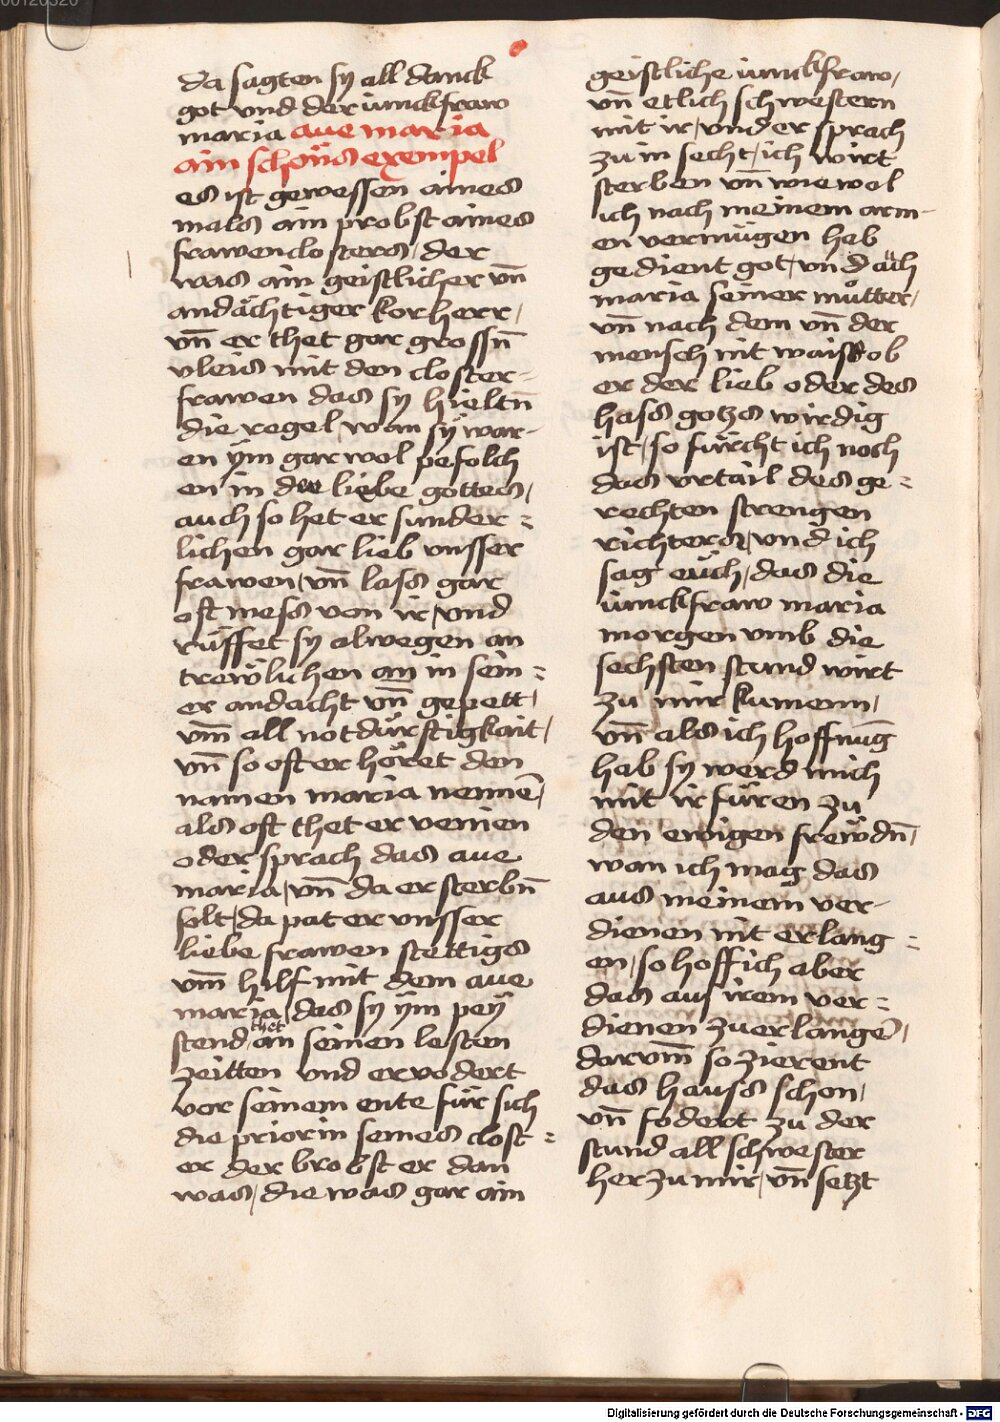 da sagten sy all danck
got vnd der iunckfraw
maria aue maria
ain schöns exempel
es ist gewessen aines
mals ain probst aines
frawenclosters, der
was ain geistlicher vn̄
andächtiger korherr,
vn̄ er thet gar grossn̄
vleis mit den closter-
frawen das sy hieltn̄
die regel, wan sÿ war-
en ÿm gar wol pefolch
en in der liebe gottes,
auch so het er sunder=
lichen gar lieb vnsser
frawen, vn̄ lass gar
oft mess von ir, vnd
rüffet sy alwegen an
trewlichen an in sein=
er andacht vn̄ gepett,
vm̄ all notdürftigkait,
vn̄ so oft er höret den
namen maria nennē,
als oft thet er venien
oder sprach das aue
maria, vn̄ da er sterbn̄
solt, da pat er vnsser
liebe frawen stettigs
vm̄ hilf mit dem aue
maria, das sy ÿm peÿ
stend thet an seinen lesten
zeitten vnd ervodert
vor seinem ente für sich
die priorin seines clost=
er der brobst er dan
was, die was gar ain
geistliche iunckfraw,
vn̄ etlich schwestern
mit ir, vnd er sprach
zu in secht, ich wirt
sterben vn̄ wie wol
ich nach meinem arm-
en vermügen hab
gedient got, vnd äuch
maria seiner mütter,
vn̄ nach dem vn̄ der
mensch nit waiss ob
er der lieb oder des
hass gotzs wirdig
ist, so fürcht ich noch
das vrtail des ge=
rechten strengen
richters, vnd ich
sag eüch, das die
iunckfraw maria
morgen vmb die
sechsten stund wirt
zu mir kumenn,
vn̄ als ich hoffnūg
hab sy werd mich
mit ir füren zu
den ewigen frewdn̄,
wan ich mag das
aus meinem ver-
dienen nit erlang=
en, so hoff ich aber
das aus irem ver=
dienen zuerlangē,
darvm̄ so zierent
das hauss schon,
vn̄ fodert zu der
stund all schwester
her zu mir, vn̄ setzt
Digitalisierung gefördert durch die Deutsche Forschungsgemeinschaft - DFG